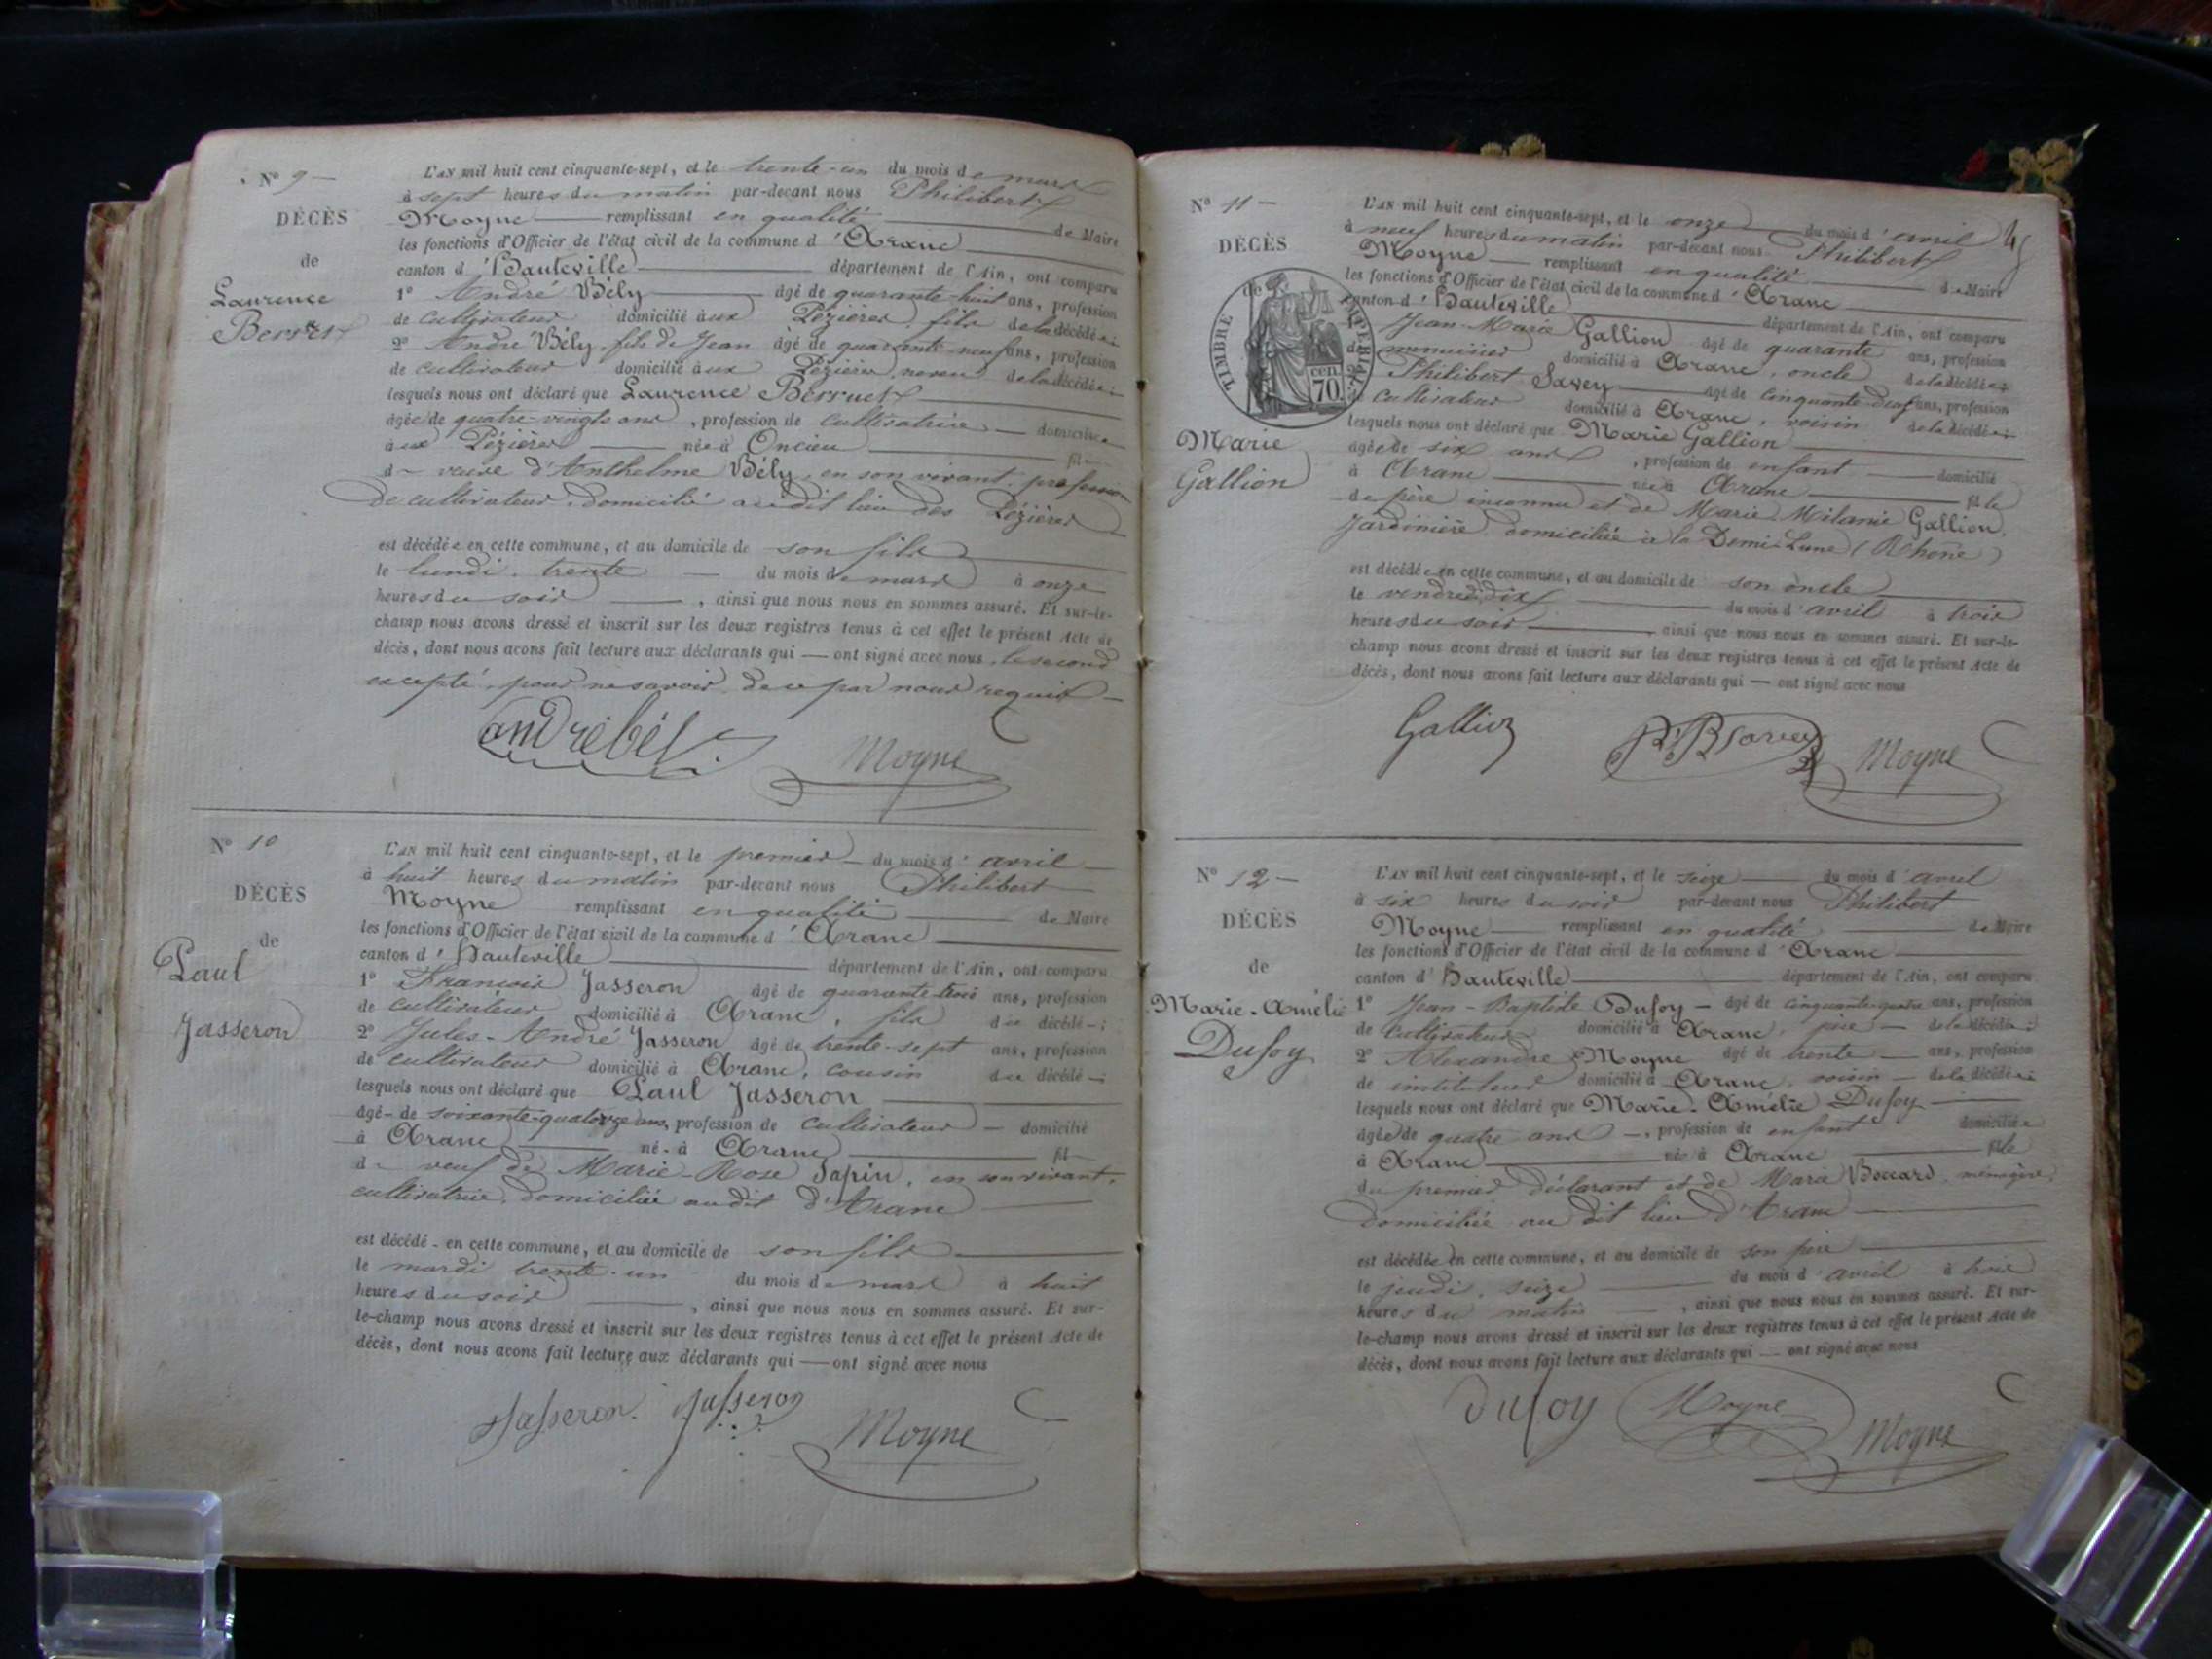 N° 9 —
DÉCÈS
de
Laurence
Berruet
L'AN mil huit cent cinquante-sept, et le trente-un du mois de mars
à sept heures du matin par-devant nous Philibert
Moyne remplissant en qualité de Maire
les fonctions d'Officier de l'état civil de la commune d'Aranc
canton d'Hauteville département de l'Ain, ont comparu
1° André Bély âgé de quarante-huit ans, profession
de cultivateur domicilié aux Pézières, fils de la décédée;
2° André Bély, fils de Jean âgé de quarante-neuf ans, profession
de cultivateur domicilié aux Pézières, neveu de la décédée;
lesquels nous ont déclaré que Laurence Berruet
âgée de quatre-vingts ans, profession de cultivatrice — domiciliée
aux Pézières — née à Oncieu fil—
d— veuve d'Anthelme Bély, en son vivant, profession
de cultivateur, domicilié audit lieu des Pézières
est décédée en cette commune, et au domicile de son fils
le lundi, trente — du mois de mars à onze
heures du soir —, ainsi que nous nous en sommes assuré. Et sur-le-
champ nous avons dressé et inscrit sur les deux registres tenus à cet effet le présent Acte de
décès, dont nous avons fait lecture aux déclarants qui — ont signé avec nous, le second
excepté, pour ne savoir, de ce par nous requis —
andrébély
Moyne
N° 10
DÉCÈS
de
Paul
Jasseron
L'AN mil huit cent cinquante-sept, et le premier — du mois d'avril —
à huit heures du matin par-devant nous Philibert
Moyne remplissant en qualité — de Maire
les fonctions d'Officier de l'état civil de la commune d'Aranc
canton d'Hauteville département de l'Ain, ont comparu
1° François Jasseron âgé de quarante-trois ans, profession
de cultivateur domicilié à Aranc, fils du décédé—;
2° Jules-André Jasseron âgé de trente-sept ans, profession
de cultivateur domicilié à Aranc, cousin du décédé—;
lesquels nous ont déclaré que Paul Jasseron
âgé— de soixante-quatorze ans, profession de cultivateur — domicilié
à Aranc né- à Aranc fil—
d— veuf de Marie-Rose Sapin, en son vivant,
cultivatrice, domiciliée audit d'Aranc
est décédé - en cette commune, et au domicile de son fils
le mardi trente-un du mois de mars à huit
heures du soir —, ainsi que nous nous en sommes assuré. Et sur-
le-champ nous avons dressé et inscrit sur les deux registres tenus à cet effet le présent Acte de
décès, dont nous avons fait lecture aux déclarants qui — ont signé avec nous
Jasseron. Jasseron
Moyne
N° 11 —
DÉCÈS
de
TIMBRE IMPERIAL
70 cen.
Marie
Gallion
L'AN mil huit cent cinquante-sept, et le onze — du mois d'avril
à neuf heures du matin par-devant nous Philibert
Moyne — remplissant en qualité — de Maire
les fonctions d'Officier de l'état civil de la commune d'Aranc
canton d'Hauteville département de l'Ain, ont comparu
Jean-Marie Gallion âgé de quarante ans, profession
de menuisier domicilié à Aranc, oncle de la décédée;
2° Philibert Savey âgé de cinquante-deux ans, profession
de cultivateur domicilié à Aranc, voisin de la décédée;
lesquels nous ont déclaré que Marie Gallion
âgée de six ans, profession de enfant — domicilié
à Aranc née à Aranc fille
de père inconnu et de Marie Mélanie Gallion,
jardinière, domiciliée à la Demi-Lune (Rhône)
est décédée en cette commune, et au domicile de son oncle
le vendredi, dix du mois d'avril à trois
heures du soir — ainsi que nous nous en sommes assuré. Et sur-le-
champ nous avons dressé et inscrit sur les deux registres tenus à cet effet le présent Acte de
décès, dont nous avons fait lecture aux déclarants qui — ont signé avec nous
Gallion
Savey
Moyne
N° 12 —
DÉCÈS
de
Marie-Amélie
Dufoy
L'AN mil huit cent cinquante-sept, et le seize — du mois d'avril
à six heures du soir par-devant nous Philibert
Moyne — remplissant en qualité — de Maire
les fonctions d'Officier de l'état civil de la commune d'Aranc
canton d'Hauteville département de l'Ain, ont comparu
1° Jean-Baptiste Dufoy — âgé de cinquante-quatre ans, profession
de cultivateur domicilié à Aranc, père — de la décédée;
2° Alexandre Moyne âgé de trente — ans, profession
de instituteur domicilié à Aranc, voisin — de la décédée;
lesquels nous ont déclaré que Marie-Amélie Dufoy
âgée de quatre ans —, profession de enfant domiciliée
à Aranc née à Aranc fille
du premier déclarant et de Marie Boccard, ménagère,
domiciliée au dit lieu d'Aranc
est décédée en cette commune, et au domicile de son père
le jeudi, seize du mois d'avril à trois
heures du matin —, ainsi que nous nous en sommes assuré. Et sur-
le-champ nous avons dressé et inscrit sur les deux registres tenus à cet effet le présent Acte de
décès, dont nous avons fait lecture aux déclarants qui — ont signé avec nous
Dufoy
Moyne
Moyne